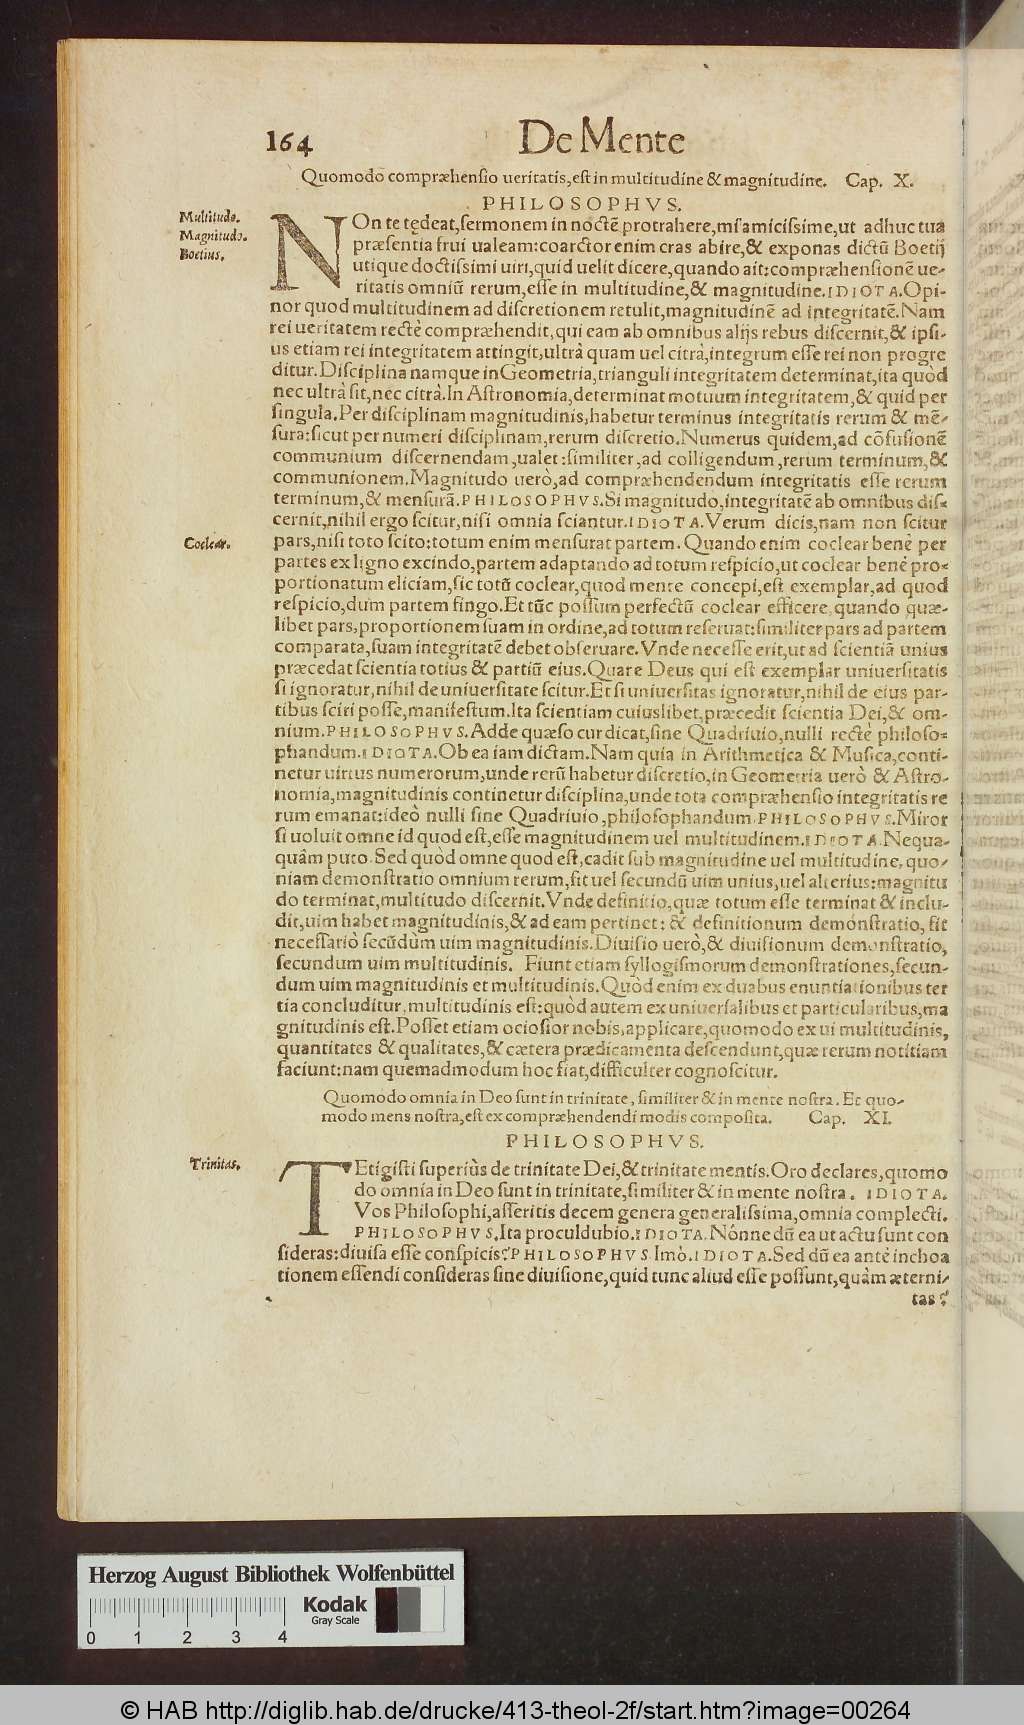 164 De Mente
Quomodo compræhensio ueritatis, est in multitudine & magnitudine. Cap. X.
PHILOSOPHVS.
Multitudo.
Magnitudo.
Boetius.
NOn te tędeat, sermonem in noctẽ protrahere, mi amicissime, ut adhuc tua
præsentia frui ualeam: coarctor enim cras abire, & exponas dictũ Boetij
utique doctissimi uiri, quid uelit dicere, quando ait: compræhensionẽ ue-
ritatis omniũ rerum, esse in multitudine, & magnitudine. IDIOTA. Opi-
nor quod multitudinem ad discretionem retulit, magnitudinẽ ad integritatẽ. Nam
rei ueritatem rectè compræhendit, qui eam ab omnibus alijs rebus discernit, & ipsi-
us etiam rei integritatem attingit, ultrà quam uel citrà, integrum esse rei non progre
ditur. Disciplina namque in Geometria, trianguli integritatem determinat, ita quòd
nec ultrà sit, nec citrà. In Astronomia, determinat motuum integritatem, & quid per
singula. Per disciplinam magnitudinis, habetur terminus integritatis rerum & mẽ-
sura: sicut per numeri disciplinam, rerum discretio. Numerus quidem, ad cõfusionẽ
communium discernendam, ualet: similiter, ad colligendum, rerum terminum, &
communionem. Magnitudo uerò, ad compræhendendum integritatis esse rerum
terminum, & mensurã. PHILOSOPHVS. Si magnitudo, integritatẽ ab omnibus dis-
cernit, nihil ergo scitur, nisi omnia sciantur. IDIOTA. Verum dicis, nam non scitur
Coclear.
pars, nisi toto scito: totum enim mensurat partem. Quando enim coclear benè per
partes ex ligno excindo, partem adaptando ad totum respicio, ut coclear benè pro-
portionatum eliciam, sic totũ coclear, quod mente concepi, est exemplar, ad quod
respicio, dum partem fingo. Et tũc possum perfectũ coclear efficere, quando quæ-
libet pars, proportionem suam in ordine, ad totum reseruat: similiter pars ad partem
comparata, suam integritatẽ debet obseruare. Vnde necesse erit, ut ad scientiã unius
præcedat scientia totius & partiũ eius. Quare Deus qui est exemplar uniuersitatis
si ignoratur, nihil de uniuersitate scitur. Et si uniuersitas ignoratur, nihil de eius par-
tibus sciri posse, manifestum. Ita scientiam cuiuslibet, præcedit scientia Dei, & om-
nium. PHILOSOPHVS. Adde quæso cur dicat, sine Quadriuio, nulli rectè philoso-
phandum. IDIOTA. Ob ea iam dictam. Nam quia in Arithmetica & Musica, conti-
netur uirtus numerorum, unde rerũ habetur discretio, in Geometria uerò & Astro-
nomia, magnitudinis continetur disciplina, unde tota compræhensio integritatis re
rum emanat: ideò nulli sine Quadriuio, philosophandum. PHILOSOPHVS. Miror
si uoluit omne id quod est, esse magnitudinem uel multitudinem. IDIOTA. Nequa-
quàm puto. Sed quòd omne quod est, cadit sub magnitudine uel multitudine, quo-
niam demonstratio omnium rerum, fit uel secundũ uim unius, uel alterius: magnitu
do terminat, multitudo discernit. Vnde definitio, quæ totum esse terminat & inclu-
dit, uim habet magnitudinis, & ad eam pertinet: & definitionum demõnstratio, fit
necessariò secũdùm uim magnitudinis. Diuisio uerò, & diuisionum demonstratio,
secundum uim multitudinis. Fiunt etiam syllogismorum demonstrationes, secun-
dum uim magnitudinis et multitudinis. Quòd enim ex duabus enuntiationibus ter
tia concluditur, multitudinis est: quòd autem ex uniuersalibus et particularibus, ma
gnitudinis est. Posset etiam ociosior nobis, applicare, quomodo ex ui multitudinis,
quantitates & qualitates, & cætera prædicamenta descendunt, quæ rerum notitiam
faciunt: nam quemadmodum hoc fiat, difficulter cognoscitur.
Quomodo omnia in Deo sunt in trinitate, similiter & in mente nostra. Et quo-
modo mens nostra, est ex compræhendendi modis composita. Cap. XI.
PHILOSOPHVS.
Trinitas.
TEtigisti superiùs de trinitate Dei, & trinitate mentis. Oro declares, quomo
do omnia in Deo sunt in trinitate, similiter & in mente nostra. IDIOTA.
Vos Philosophi, asseritis decem genera generalissima, omnia complecti.
PHILOSOPHVS. Ita proculdubio. IDIOTA. Nónne dũ ea ut actu sunt con
sideras: diuisa esse conspicis? PHILOSOPHVS. Imò. IDIOTA. Sed dũ ea antè inchoa
tionem essendi consideras sine diuisione, quid tunc aliud esse possunt, quàm æterni-
tas?
Herzog August Bibliothek Wolfenbüttel
Kodak
Gray Scale
0 1 2 3 4
© HAB http://diglib.hab.de/drucke/413-theol-2f/start.htm?image=00264